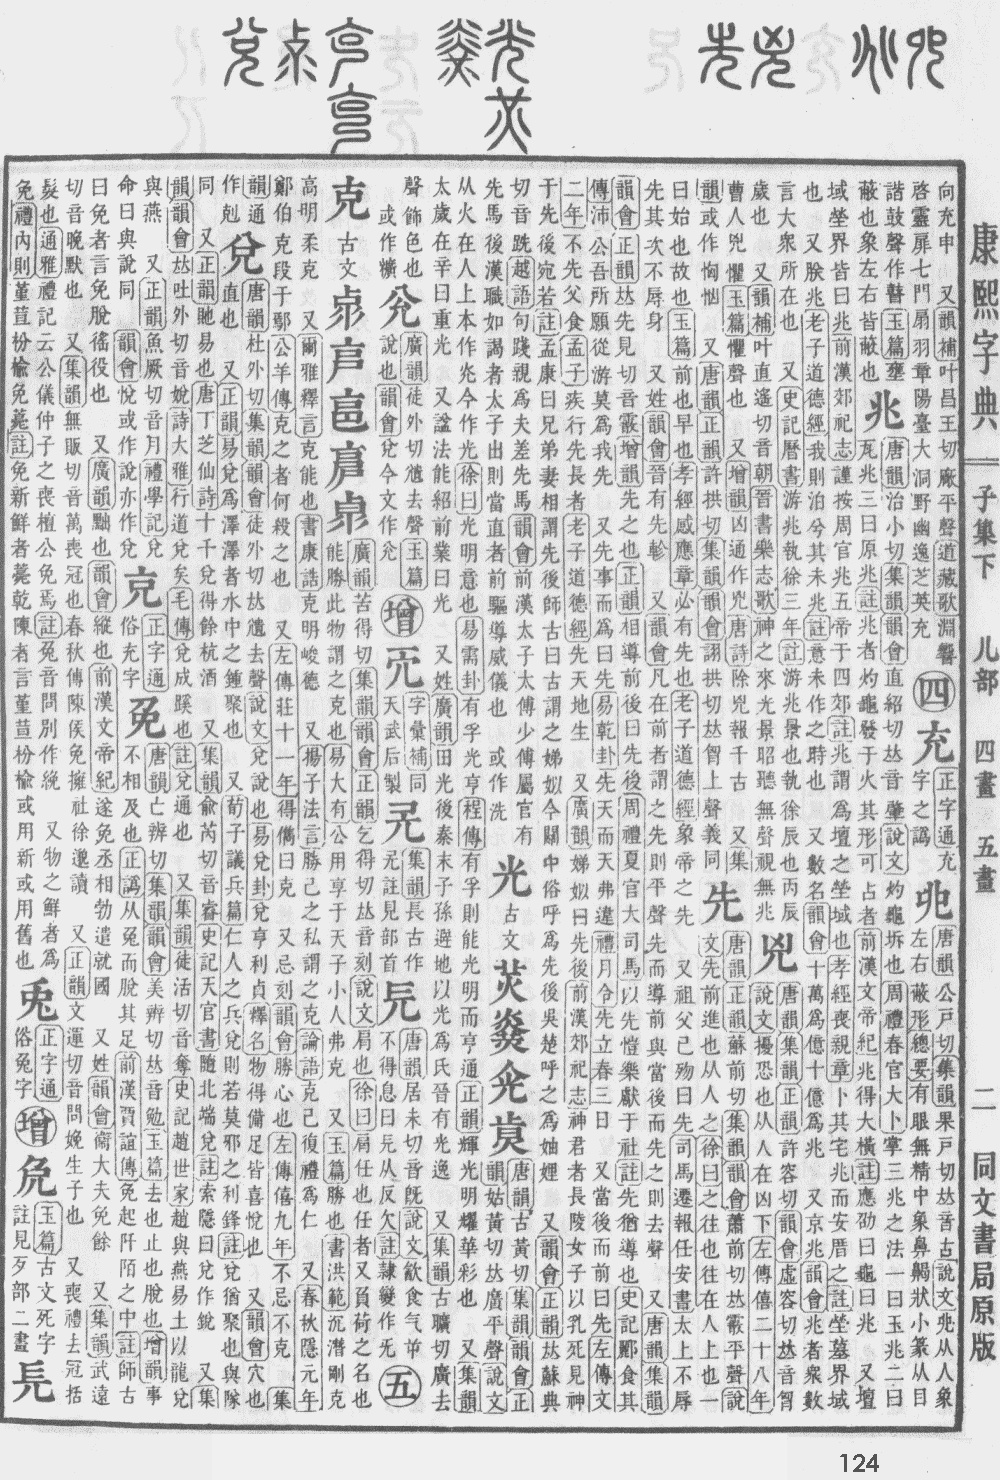 康熙字典
子集下
儿部
四畫
五畫
二
同文書局原版
向充申　又韻補叶昌王切廠平聲道藏歌淵響
啓靈扉七門扇羽章陽臺大洞野幽逸芝英充
四
充
正字通充字之譌
𠑹
唐韻公戸切集韻果戸切𠀤音古說文𠑹从人象
左右蔽形總要有眼無精中象鼻觸狀小篆从目
諧鼓聲作瞽玉篇壅
蔽也象左右皆蔽也
兆
唐韻治小切集韻韻會直紹切𠀤音肇說文灼龜坼也周禮春官大卜掌三兆之法一曰玉兆二曰
瓦兆三曰原兆註兆者灼龜發于火其形可占者前漢文帝紀兆得大橫註應劭曰龜曰兆　又壇
域塋界皆曰兆前漢郊祀志謹按周官兆五帝于四郊註兆謂爲壇之塋域也孝經喪親章卜其宅兆而安厝之註塋墓界域
也　又朕兆老子道德經我則泊兮其未兆註意未作之時也　又數名韻會十萬爲億十億爲兆　又京兆韻會兆者衆數
言大衆所在也　又史記曆書游兆執徐三年註游兆景也執徐辰也丙辰
歲也　又韻補叶直遙切音朝晉書樂志歌神之來光景昭聽無聲視無兆
兇
唐韻集韻正韻許容切韻會虛容切𠀤音匈
說文擾恐也从人在凶下左傳僖二十八年
曹人兇懼玉篇懼聲也　又增韻凶通作兇唐詩除兇報千古　又集
韻或作恟㤑　又唐韻正韻許拱切集韻韻會詡拱切𠀤匈上聲義同
先
唐韻正韻蘇前切集韻韻會蕭前切𠀤霰平聲說
文先前進也从人之徐曰之往也往在人上也
曰始也故也玉篇前也早也孝經感應章必有先也老子道德經象帝之先　又祖父已歿曰先司馬遷報任安書太上不辱
先其次不辱身　又姓韻會晉有先軫　又韻會凡在前者謂之先則平聲先而導前與當後而先之則去聲　又唐韻集韻
韻會正韻𠀤先見切音霰增韻先之也正韻相導前後曰先後周禮夏官大司馬以先愷樂獻于社註先猶導也史記酈食其
傳沛公吾所願從游莫爲我先　又先事而爲曰先易乾卦先天而天弗違禮月令先立春三日　又當後而前曰先左傳文
二年不先父食孟子疾行先長者老子道德經先天地生　又廣韻娣姒曰先後前漢郊祀志神君者長陵女子以乳死見神
于先後宛若註孟康曰兄弟妻相謂先後師古曰古謂之娣姒今關中俗呼爲先後吳楚呼之爲妯娌　又韻會正韻𠀤蘇典
切音跣越語句踐視爲夫差先馬韻會前漢太子太傅少傅屬官有
先馬後漢職如謁者太子出則當直者前驅導威儀也　或作洗
光
古文
唐韻古黃切集韻韻會正
韻姑黃切𠀤廣平聲說文
从火在人上本作灮今作光徐曰光明意也易需卦有孚光亨程傳有孚則能光明而亨通正韻輝光明耀華彩也　又集韻
太歲在辛曰重光　又諡法能紹前業曰光　又姓廣韻田光後秦末子孫避地以光爲氏晉有光逸　又集韻古曠切廣去
聲飾色也
或作櫎
兊
廣韻徒外切𨓚去聲玉篇
說也韻會兌今文作兊
增
兂
字彙補同天武后製
兂
集韻長古作兂註見部首
旡
唐韻居未切音旣說文㱃食气屰
不得息曰旡从反欠註隷變作旡
五
克
古文
廣韻苦得切集韻韻會正韻乞得切𠀤音刻說文肩也徐曰肩任也任者又負荷之名也
能勝此物謂之克也易大有公用亨于天子小人弗克　又玉篇勝也書洪範沉潛剛克
高明柔克　又爾雅釋言克能也書康誥克明峻德　又揚子法言勝己之私謂之克論語克己復禮爲仁　又春秋隱元年
鄭伯克段于鄢公羊傳克之者何殺之也　又左傳莊十一年得儁曰克　又忌刻韻會勝心也左傳僖九年不忌不克　集
韻通
作剋
兌
唐韻杜外切集韻韻會徒外切𠀤𨓚去聲說文兌說也易兌卦兌亨利貞釋名物得備足皆喜悅也　又韻會穴也
直也　又正韻易兌爲澤澤者水中之鍾聚也　又荀子議兵篇仁人之兵兌則若莫邪之利鋒註兌猶聚也與隊
同　又正韻馳易也唐丁芝仙詩十千兌得餘杭酒　又集韻俞芮切音睿史記天官書隨北端兌註索隱曰兌作銳　又集
韻韻會𠀤吐外切音娧詩大雅行道兌矣毛傳兌成蹊也註兌通也　又集韻徒活切音奪史記趙世家趙與燕易土以龍兌
與燕　又正韻魚厥切音月禮學記兌
命曰與說同　韻會悅或作說亦作兌
克
正字通俗充字
免
唐韻亡辨切集韻韻會美辨切𠀤音勉玉篇去也止也脫也增韻事
不相及也正譌从兔而脫其足前漢賈誼傳免起阡陌之中註師古
曰免者言免脫徭役也　又廣韻黜也韻會縱也前漢文帝紀遂免丞相勃遣就國　又姓韻會衞大夫免餘　又集韻武遠
切音晚默也　又集韻無販切音萬喪冠也春秋傳陳侯免擁社徐邈讀　又正韻文運切音問娩生子也　又喪禮去冠括
髮也通雅禮記云公儀仲子之喪檀公免焉註免音問別作絻　又物之鮮者爲
免禮內則堇荁枌榆免薧註免新鮮者薧乾陳者言堇荁枌榆或用新或用舊也
兎
正字通俗兔字
增
𠒎
玉篇古文死字註見歹部二畫
镸
124